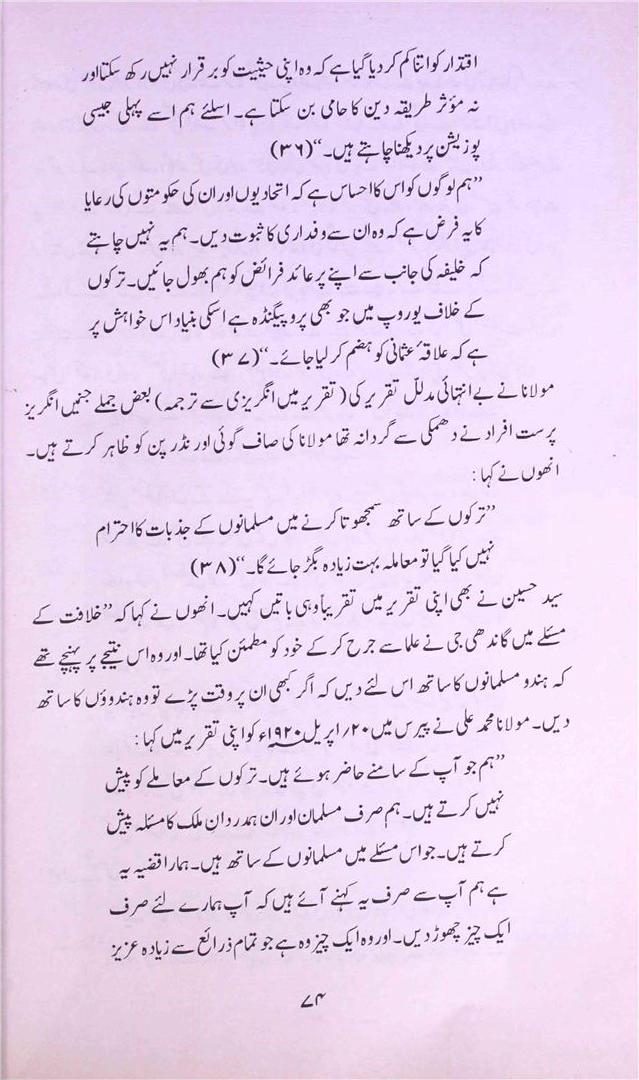 اقتدار کو اتنا کم کر دیا گیا ہے کہ وہ اپنی حیثیت کو برقرار نہیں رکھ سکتا اور
نہ مؤثر طریقہ دین کا حامی بن سکتا ہے۔ اسلئے ہم اسے پہلی جیسی
پوزیشن پر دیکھنا چاہتے ہیں۔“ (۳۶)
”ہم لوگوں کو اس کا احساس ہے کہ اتحادیوں اور ان کی حکومتوں کی رعایا
کا یہ فرض ہے کہ وہ ان سے وفداری کا ثبوت دیں۔ ہم یہ نہیں چاہتے
کہ خلیفہ کی جانب سے اپنے پر عائد فرائض کو ہم بھول جائیں۔ ترکوں
کے خلاف یوروپ میں جو بھی پروپیگنڈہ ہے اسکی بنیاد اس خواہش پر
ہے کہ علاقۂ عثمانی کو ہضم کر لیا جائے۔“ (۳۷)
مولانا نے بے انتہائی مدلل تقریر کی (تقریر میں انگریزی سے ترجمہ) بعض جملے جنہیں انگریز
پرست افراد نے دھمکی سے گردانہ تھا مولانا کی صاف گوئی اور نڈر پن کو ظاہر کرتے ہیں۔
انھوں نے کہا :
”ترکوں کے ساتھ سمجھوتا کرنے میں مسلمانوں کے جذبات کا احترام
نہیں کیا گیا تو معاملہ بہت زیادہ بگڑ جائے گا۔“ (۳۸)
سید حسین نے بھی اپنی تقریر میں تقریباً وہی باتیں کہیں۔ انھوں نے کہا کہ ”خلافت کے
مسئلے میں گاندھی جی نے علما سے جرح کر کے خود کو مطمئن کیا تھا۔ اور وہ اس نتیجے پر پہنچے تھے
کہ ہندو مسلمانوں کا ساتھ اس لئے دیں کہ اگر کبھی ان پر وقت پڑے تو وہ ہندوؤں کا ساتھ
دیں۔ مولانا محمد علی نے پیرس میں ۲۰؍ اپریل ۱۹۲۰ء کو اپنی تقریر میں کہا :
”ہم جو آپ کے سامنے حاضر ہوئے ہیں۔ ترکوں کے معاملے کو پیش
نہیں کرتے ہیں۔ ہم صرف مسلمان اور ان ہمدردانِ ملک کا مسئلہ پیش
کرتے ہیں۔ جو اس مسئلے میں مسلمانوں کے ساتھ ہیں۔ ہمارا قضیہ یہ
ہے ہم آپ سے صرف یہ کہنے آئے ہیں کہ آپ ہمارے لئے صرف
ایک چیز چھوڑ دیں۔ اور وہ ایک چیز وہ ہے جو تمام ذرائع سے زیادہ عزیز
۷۴